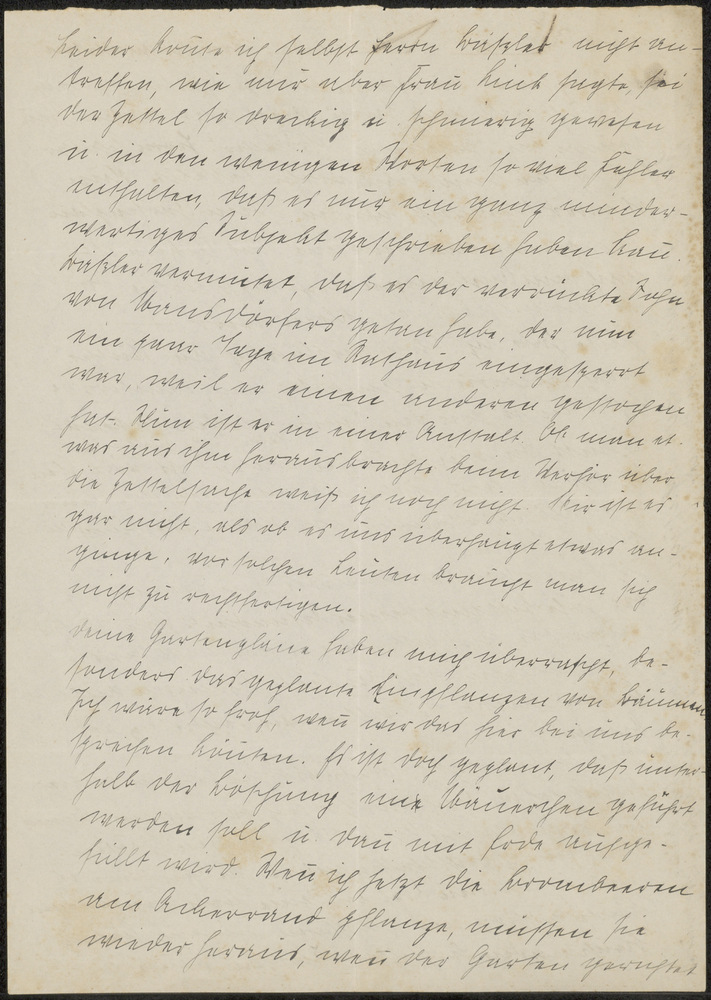 Leider konnte ich selbst Herrn Bäßler nicht an-
treffen, wie mir aber Frau Kind sagte, sei
der Zettel so dreckig u. schmierig gewesen
u. in den wenigen Worten so viel Fehler
enthalten, daß es nur ein ganz minder-
wertiges Subjekt geschrieben haben kann.
Bäßler vermutet, daß es der verrückte Sohn
von Wansdörfers getan habe, der nun
ein paar Tage im Rathaus eingesperrt
war, weil er einen anderen gestochen
hat. Nun ist er in einer Anstalt. Ob man et-
was aus ihm herausbrachte beim Verhör über
die Zettelsache weiß ich noch nicht. Mir ist es
gar nicht, als ob es uns überhaupt etwas an-
ginge, vor solchen Leuten braucht man sich
nicht zu rechtfertigen.
Deine Gartenpläne haben mich überrascht, be-
sonders das geplante Einpflanzen von Bäumen.
Ich wäre so froh, wenn wir das hier bei uns be-
sprechen könnten. Es ist doch geplant, daß unter-
halb der Böschung ein Mäuerchen geführt
werden soll u. dann mit Erde aufge-
füllt wird. Wenn ich jetzt die Brombeeren
am Ackerrand pflanze, müssen sie
wieder heraus, wenn der Garten gerichtet